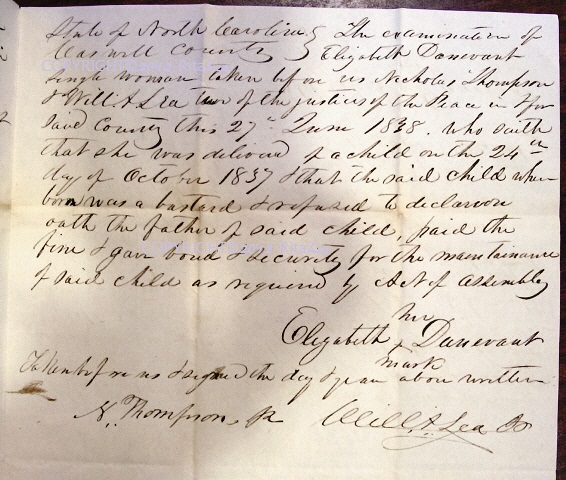 State of North Carolina } The examination of
Caswell County } Elizabeth Danevant
single woman taken before us Nicholas Thompson
& Will A Lea two of the justices of the Peace in & for
said County this 27th June 1838. who saith
that she was delivered of a child on the 24th
day of October 1837 & that the said child when
born was a bastard & refused to declare on
oath the father of said child, paid the
fine & gave bond & security for the maintainance
of said child as required by Act of Assembly
her
Elizabeth x Danevant
mark
Taken before us & signed the day & year above written
N. Thompson, JP Will A Lea JP